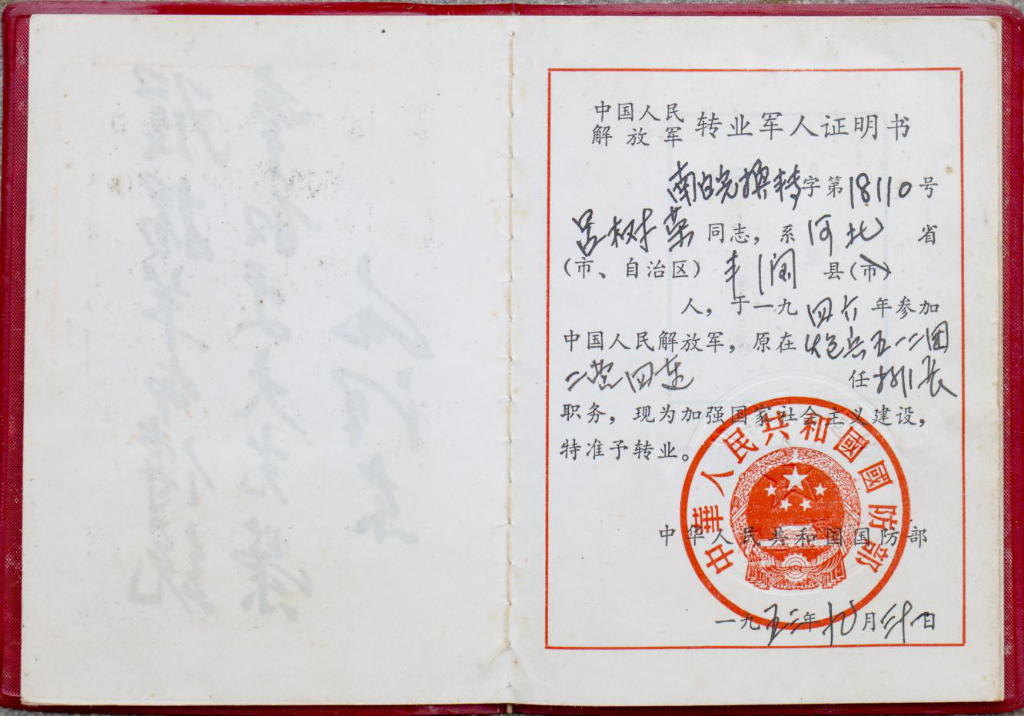 中国人民
解放军 转业军人证明书
南 转字第18110号
吕树荣同志，系河北省
（市、自治区）丰润县（市）
人，于一九四六年参加
中国人民解放军，原在炮兵五一二团
二营四连 任排长
职务，现为加强国家社会主义建设，
特准予转业。
中華人民共和國國防部
中华人民共和国国防部
一九五 年 月 日